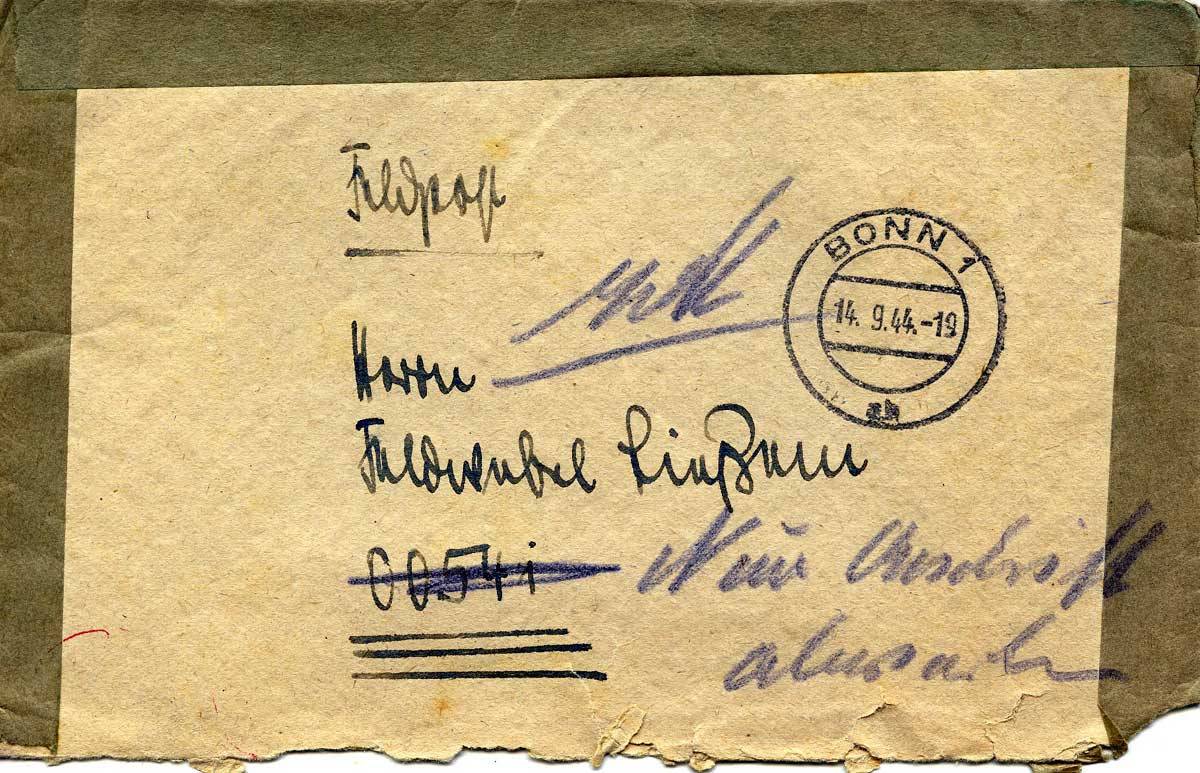 Feldpost
BONN 1
14. 9.44.-19
ah
Herrn
Feldwebel Ließem
00541
Neue Anschrift
abwarten